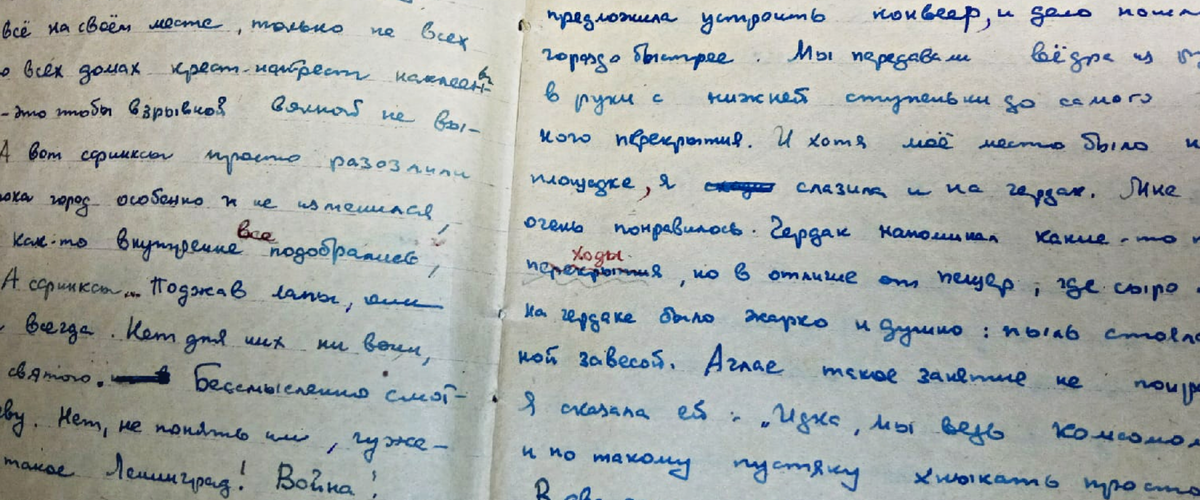 всё на своём месте, только не всех
о всех домах крест-накрест наклеены
-это чтобы взрывной волной не вы-
А вот сфинксы просто разозлили
пока город особенно и не изменился,
как-то внутренне все подобрались,
А сфинксы... Поджав лапы, они
всегда. Нет для них ни войн,
святого. Бессмысленно смот-
еву. Нет, не понять им, чуже-
такое Ленинград! Война!
предложила устроить конвеер, и дело пошл
гораздо быстрее. Мы передавали вёдра из
в руки с нижней ступеньки до самого
ного перекрытия. И хотя моё место было н
площадке, я слазила и на чердак. Мне
очень понравилось. Чердак напоминал какие-то
ходы
перекрытия, но в отличие от пещер, где сыро
на чердаке было жарко и душно: пыль стояла
ной завесой. Аглае такое занятие не понра
Я сказала ей: "Идка, мы ведь комсомол
и по такому пустяку хныкать просто